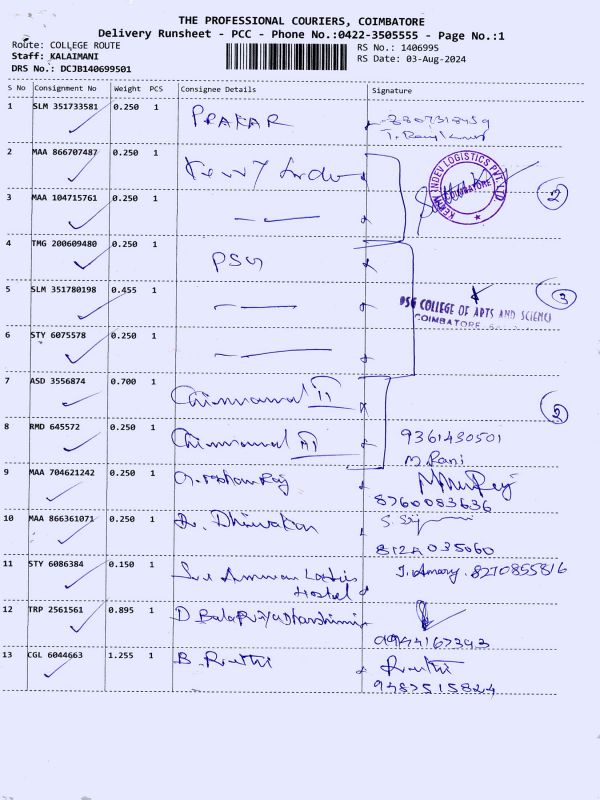 THE PROFESSIONAL COURIERS, COIMBATORE
Delivery Runsheet - PCC - Phone No.:0422-3505555 - Page No.:1
Route: COLLEGE ROUTE
RS No.: 1406995
Staff: KALAIMANI
RS Date: 03-Aug-2024
DRS No.: DCJB140699501
S No Consignment No Weight PCS Consignee Details Signature
1 SLM 351733581 0.250 1 PRAKAR
2 MAA 866707487 0.250 1 Kerry Indev
KERRY INDEV LOGISTICS PVT. LTD
COIMBATORE
2
3 MAA 104715761 0.250 1
4 TMG 200609480 0.250 1 PSG
5 SLM 351780198 0.455 1
PSG COLLEGE OF ARTS AND SCIENCE
COIMBATORE
3
6 STY 6075578 0.250 1
7 ASD 3556874 0.700 1 II
8 RMD 645572 0.250 1 III 9361430501
M. Rani
9 MAA 704621242 0.250 1
8760083636
10 MAA 866361071 0.250 1 Dr. Dhiwakar
11 STY 6086384 0.150 1 Sri Amman Ladies
Hostel
8270855816
12 TRP 2561561 0.895 1 D BalaPriyadharshini
13 CGL 6044663 1.255 1 B. Ruthi Ruthi
9487515824